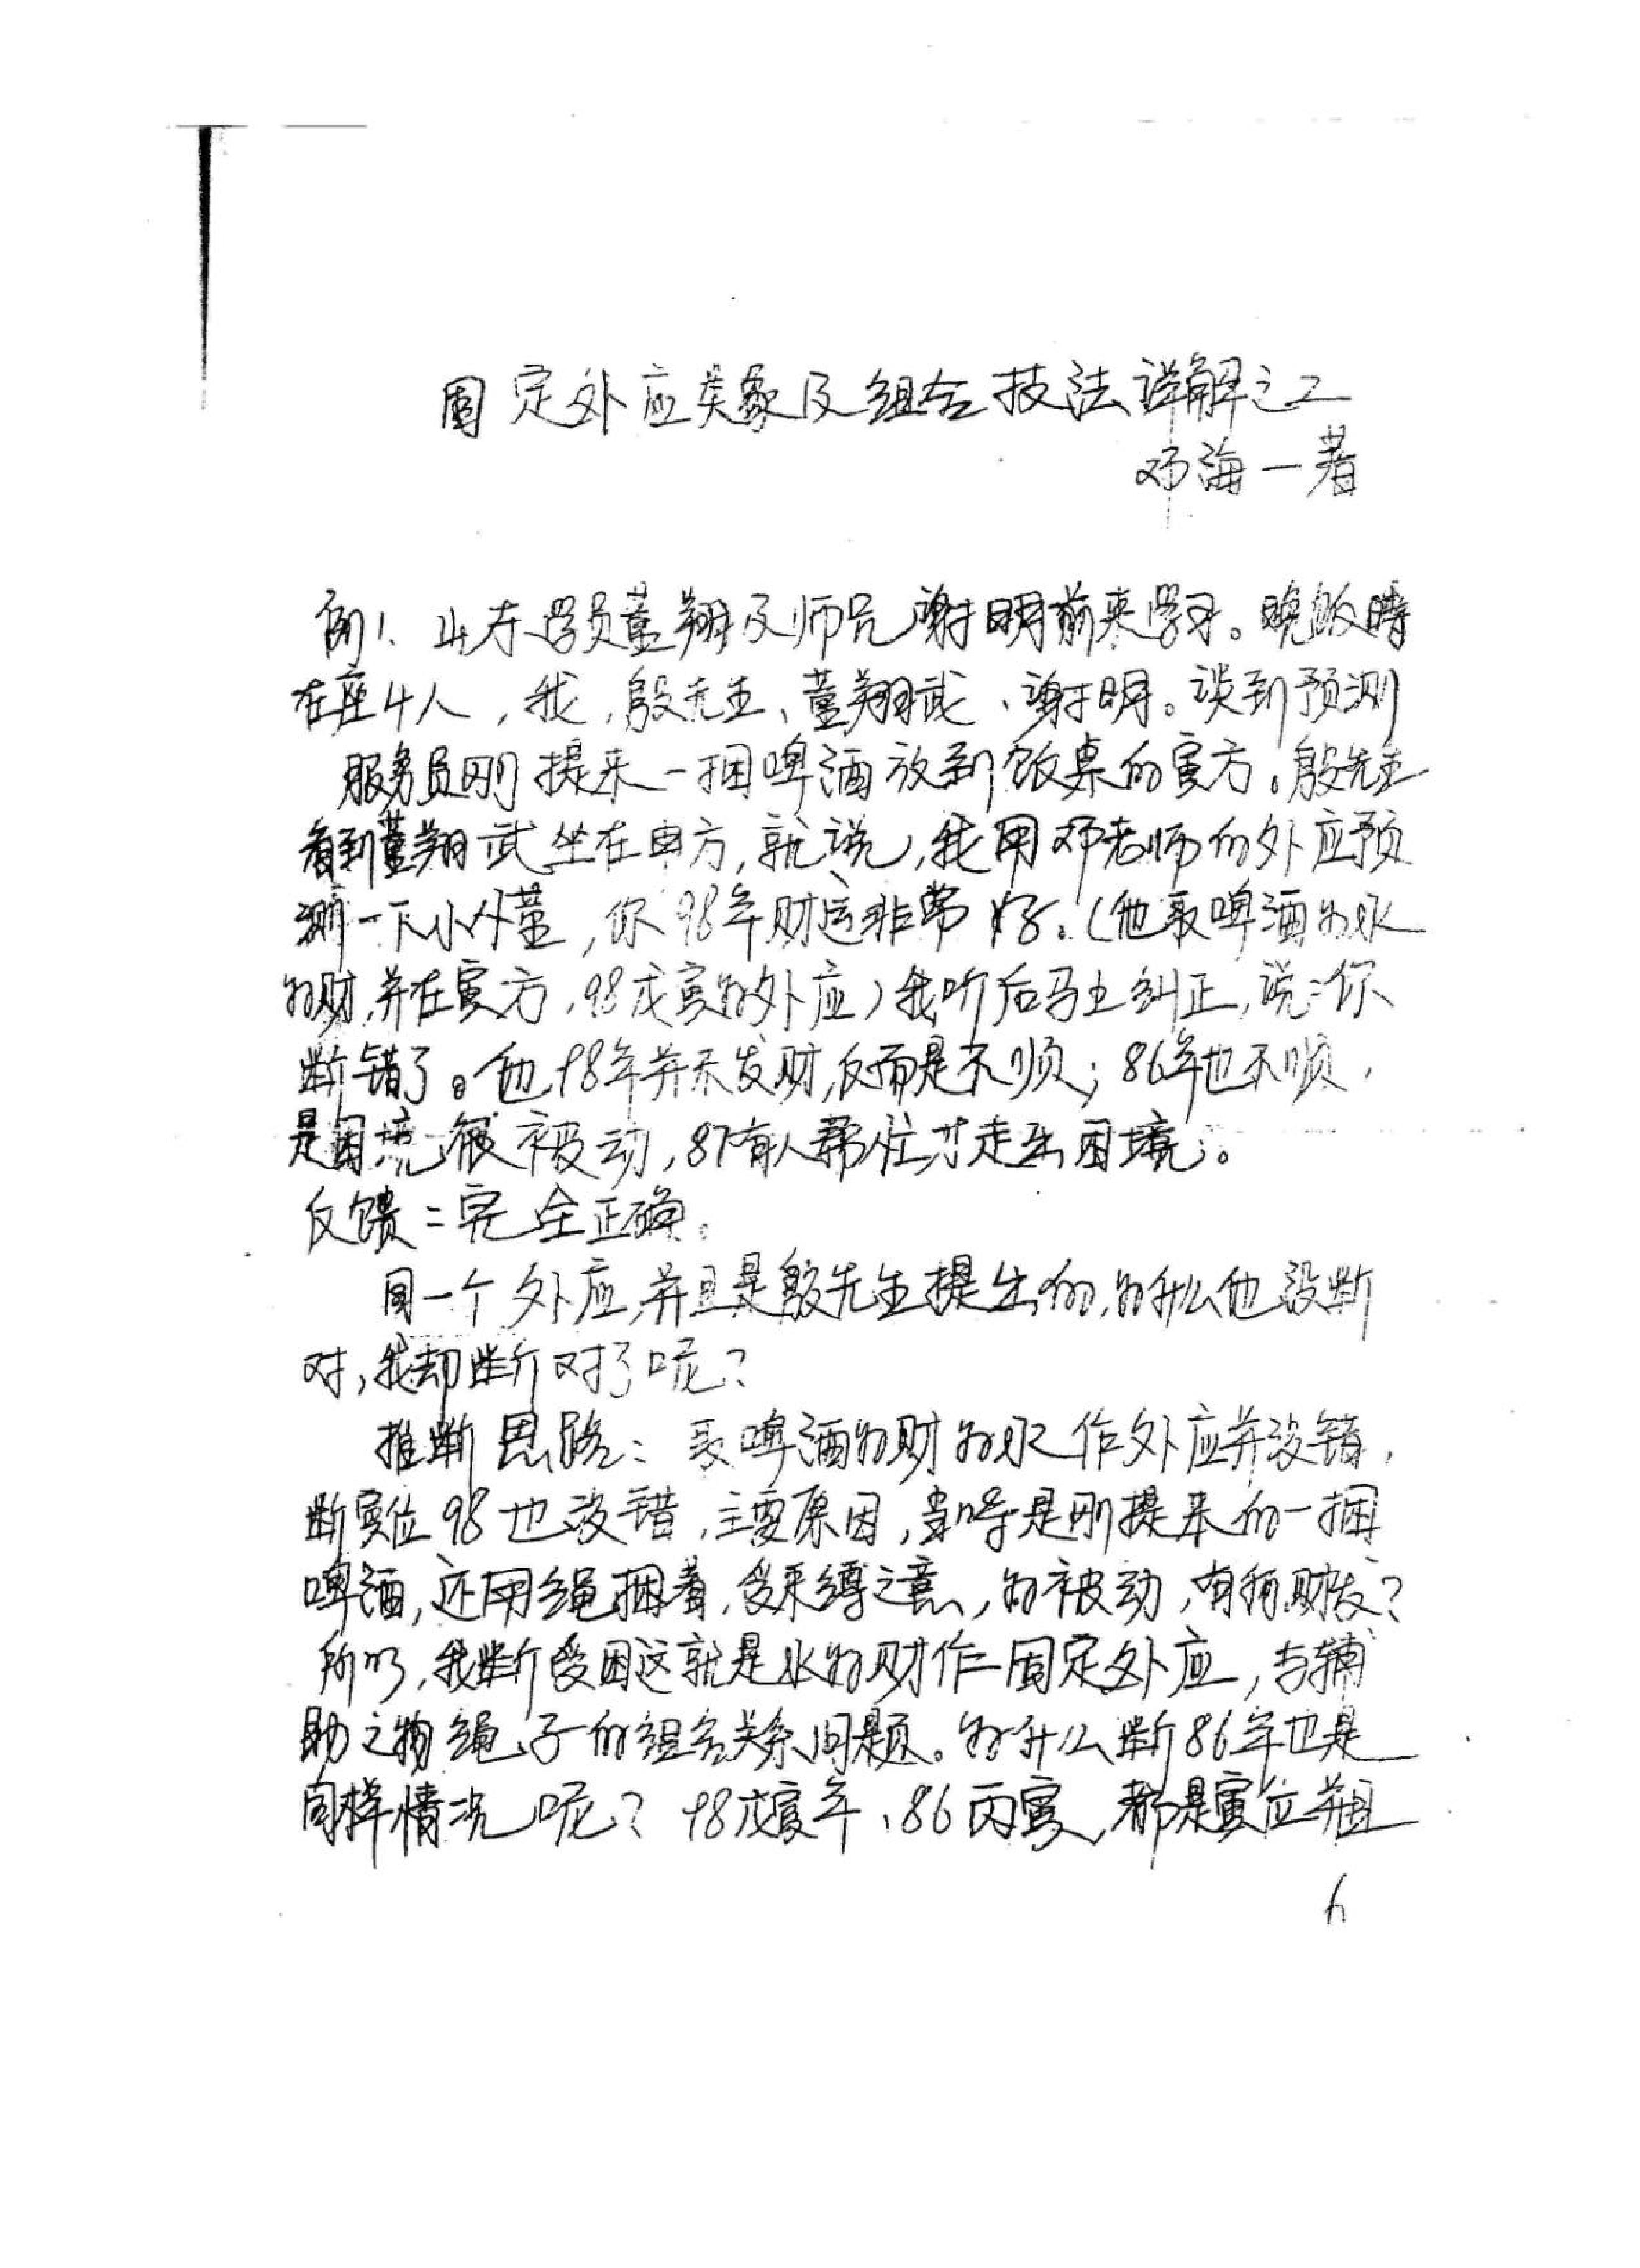 固定外应类象及组合技法详解之二
邓海一著
例1、山东学员董翔及师兄谢明前来学习。晚饭時
在座4人，我，殷先生、董翔武、谢明。谈到预测
服务员刚提来一捆啤酒放到饭桌的寅方。殷先生
看到董翔武坐在申方，就说，我用邓老师的外应预
测一下小小董，你98年财运非常好。（他取啤酒为水
为财，并在寅方，98戊寅为外应）我听后马上纠正，说：你
断错了。他98年并未发财，反而是不顺；86年也不顺，
是困境很被动，87有人帮忙才走出困境。
反馈：完全正确。
同一个外应，并且是殷先生提出的，为什么他没断
对，我却断对了呢？
推断思路：取啤酒为财为水作外应并没错，
断寅位98也没错，主要原因，当时是刚提来的一捆
啤酒，还用绳捆着，受束缚之意，为被动，有何财发？
所以，我断受困这就是水为财作固定外应，与辅
助之物绳子的组合关系问题。为什么断86年也是
同样情况呢？98戊寅年、86丙寅，都是寅位并且
6